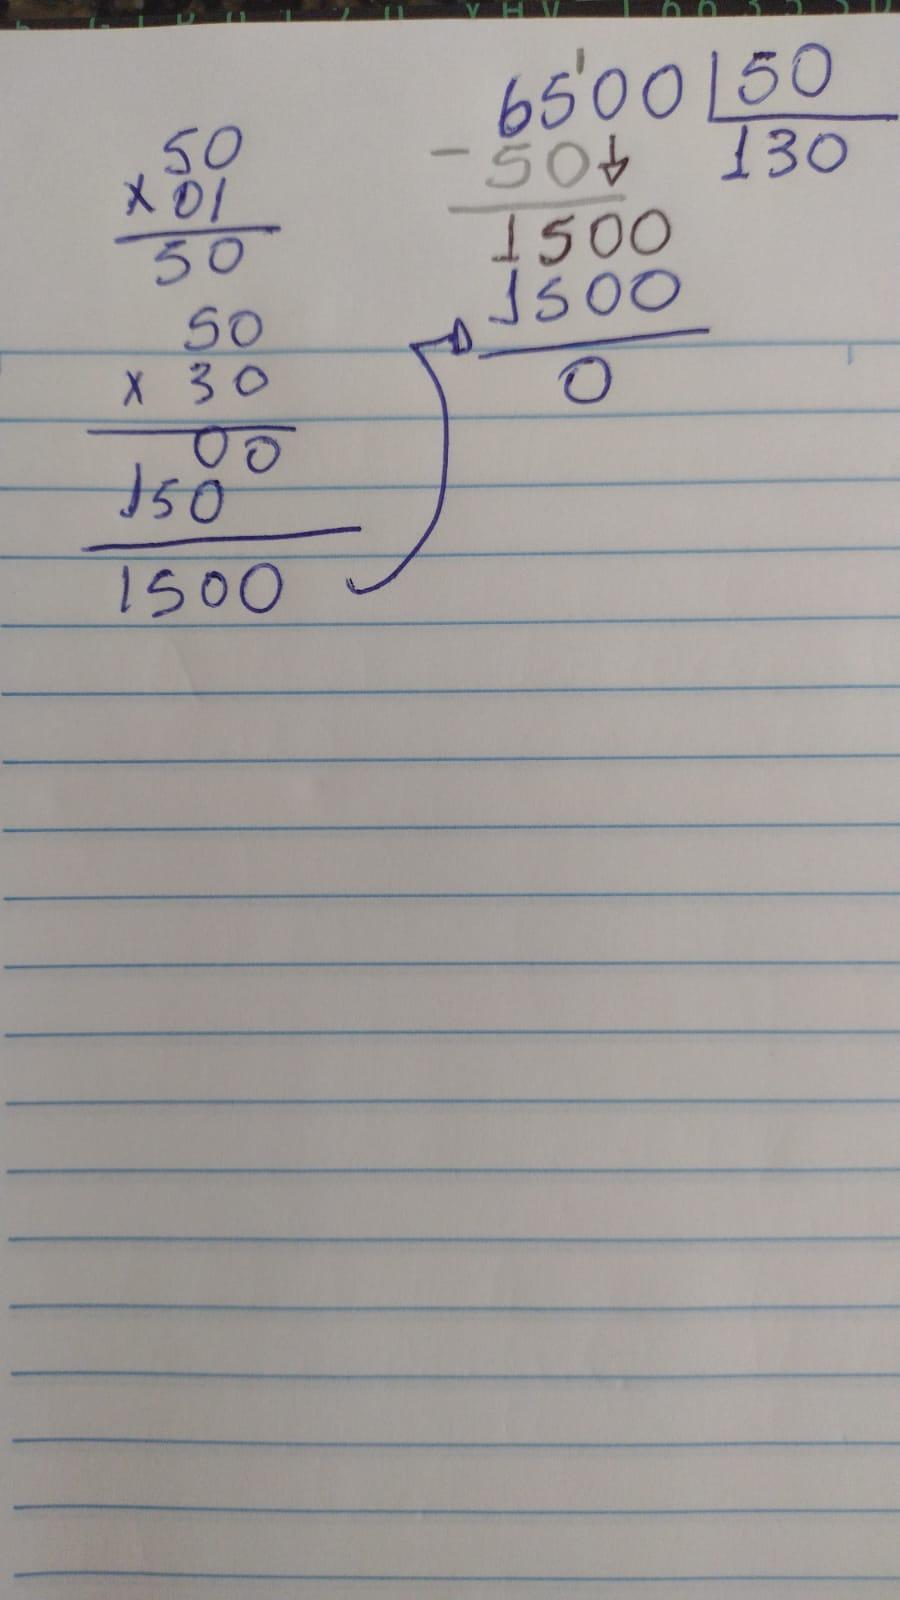 50
x 01
50
50
x 30
00
150
1500
6500 50
- 50 130
1500
1500
0